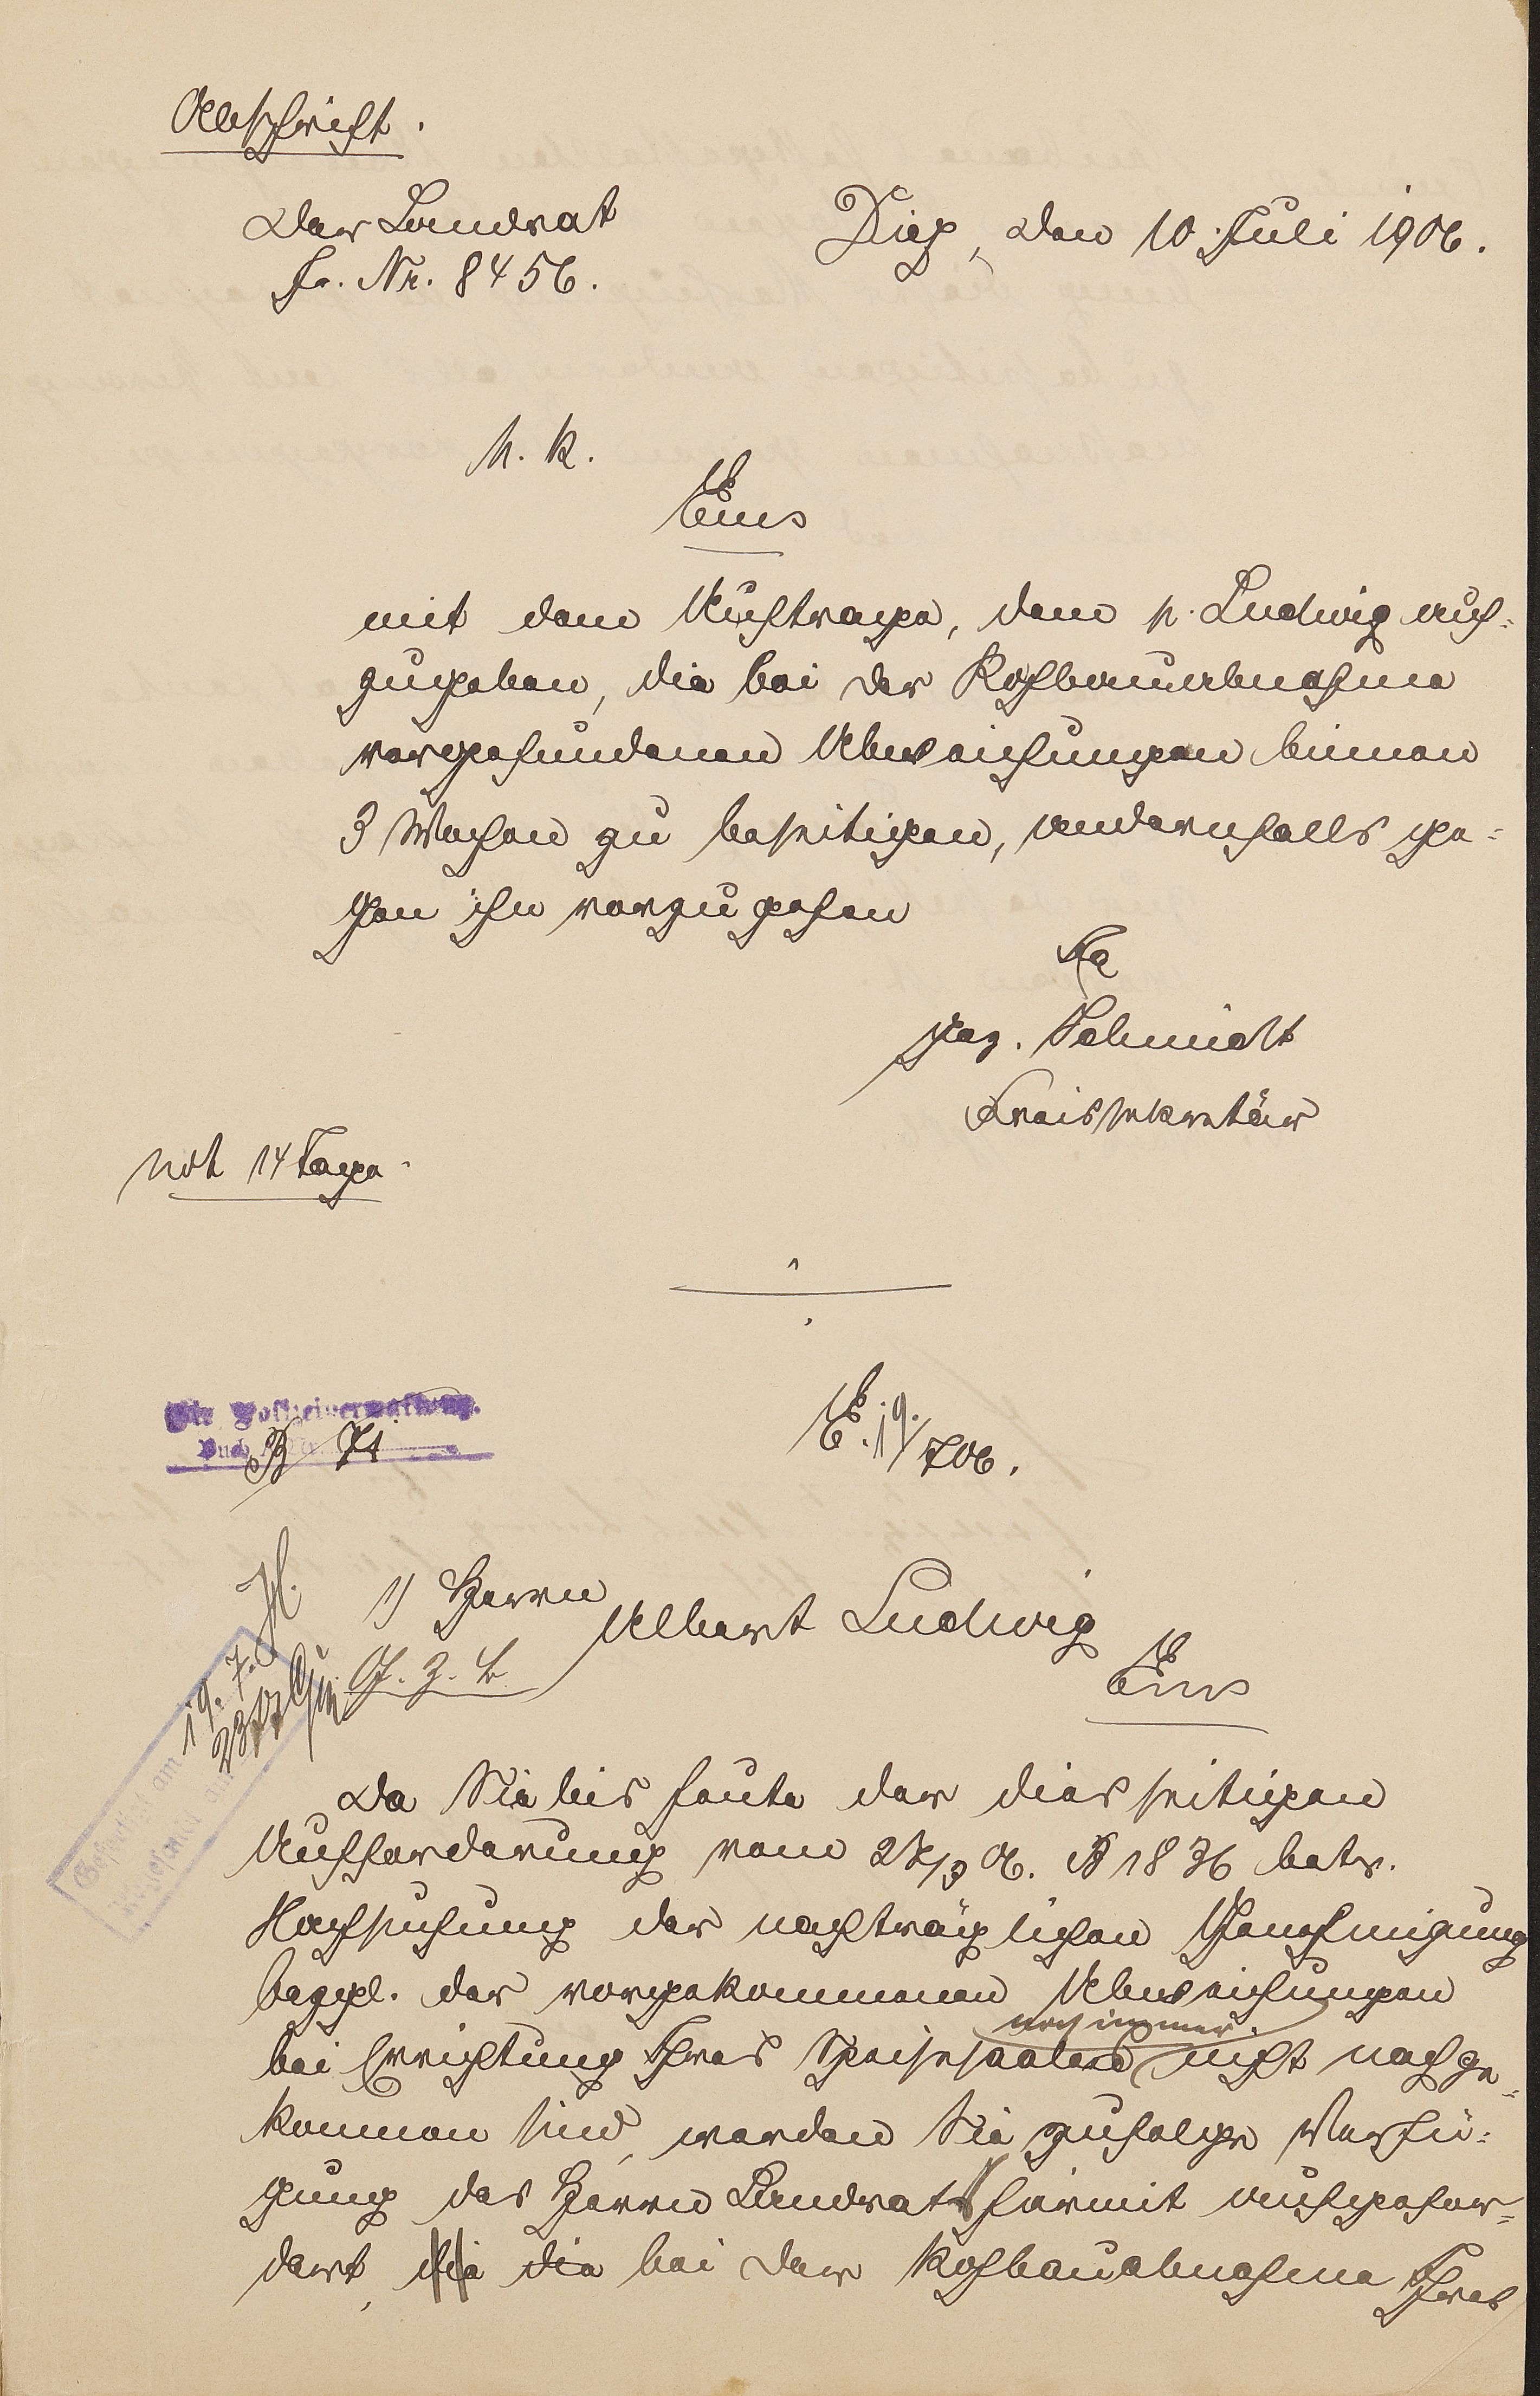 Abschrift.
Der Landrat
Diez, den 10. Juli 1906.
J. Nr. 8456.
u. R.
Ems
mit dem Auftrage, dem p. Ludwig auf-
zugeben, die bei der Rohbauabnahme
vorgefundenen Abweichungen binnen
3 Wochen zu beseitigen, andernfalls ge-
gen ihn vorzugehen
gez. Schmidt
Kreissekretär
Not 14 Tage.
Die Polizeiverwaltung.
B 71
E. 19/706.
1) Herrn
Albert Ludwig
Ems
19. 7. H.
Da Sie bis heute der diesseitigen
Aufforderung vom 27/3 06. B 1836 betr.
Nachsuchung der nachträglichen Genehmigung
bezgl. der vorgekommenen Abweichungen
noch immer
bei Errichtung Ihres Speisesaales nicht nachge-
kommen sind, werden Sie zufolge Verfü-
gung des Herrn Landrats hiermit aufgefor-
dert, die die bei der Rohbauabnahme Ihres